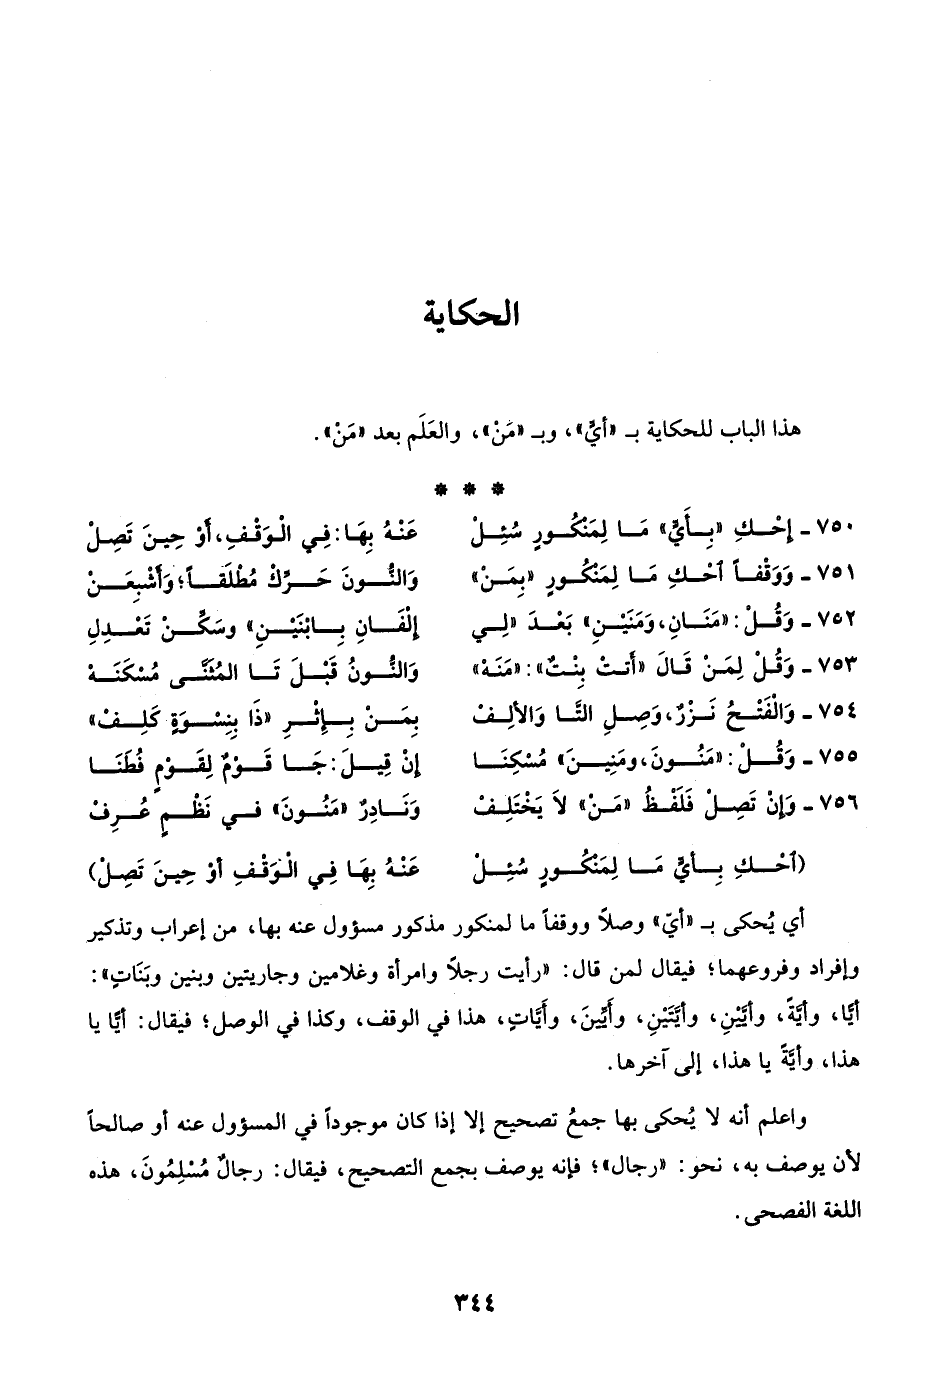 الحكاية
هذا الباب للحكاية بـ «أيٍّ»، وبـ «مَنْ»، والعَلَم بعد «مَنْ».
* * *
٧٥٠ ـ إحْـكِ «بِـأَيٍّ» مَـا لِمَنْكُـورٍ سُئِـلْ عَنْـهُ بِهَـا: فِي الْـوَقْـفِ، أوْ حِيـنَ تَصِلْ
٧٥١ ـ وَوَقْفـاً اَحْـكِ مَـا لِمَنْكُـورٍ «بِمَـنْ» وَالنُّـونَ حَـرِّكْ مُطْلَقـاً؛ وَأَشْبِعَـنْ
٧٥٢ ـ وَقُـلْ: «مَنَـانِ، وَمَنَيْـنِ» بَعْـدَ «لِـي إِلْفَـانِ بِـابْنَيْـنِ» وسَكِّـنْ تَعْـدِلِ
٧٥٣ ـ وَقُلْ لِمَنْ قَالَ «أَتـتْ بِنْـتٌ»: «مَنَـهْ» وَالنُّـونُ قَبْـلَ تَـا المُثَنَّـى مُسْكَنَـهْ
٧٥٤ ـ وَالْفَتْـحُ نَـزْرٌ، وَصِـلِ التَّـا وَالأَلِـفْ بِمَـنْ بِـإِثْـرِ «ذَا بِنِسْـوَةٍ كَلِـفْ»
٧٥٥ ـ وَقُـلْ: «مَنُـونَ، ومَنِيـنَ» مُسْكِنَـا إنْ قِيـلَ: جَـا قَـوْمٌ لِقَـوْمٍ فُطَنَـا
٧٥٦ ـ وَإنْ تَصِـلْ فَلَفْـظُ «مَـنْ» لاَ يَخْتَلِـفْ وَنَـادِرٌ «مَنُـونَ» فـي نَظْـمٍ عُـرِفْ
(اَحْـكِ بِـأيٍّ مَـا لِمَنْكُـورٍ سُئِـلْ عَنْـهُ بِهَـا فِي الْـوَقْـفِ أوْ حِيـنَ تَصِـلْ)
أي يُحكى بـ «أيّ» وصلاً ووقفاً ما لمنكور مذكور مسؤول عنه بها، من إعراب وتذكير
وإفراد وفروعهما؛ فيقال لمن قال: «رأيت رجلاً وامرأة وغلامين وجاريتين وبنين وبَنَاتٍ»:
أيًّا، وأيَّةً، وأيَّيْنِ، وأيَّتَيْنِ، وأيِّينَ، وأيَّاتٍ، هذا في الوقف، وكذا في الوصل؛ فيقال: أيًّا يا
هذا، وأيَّةً يا هذا، إلى آخرها.
واعلم أنه لا يُحكى بها جمعُ تصحيح إلا إذا كان موجوداً في المسؤول عنه أو صالحاً
لأن يوصف به، نحو: «رجال»؛ فإنه يوصف بجمع التصحيح، فيقال: رجالٌ مُسْلِمُونَ، هذه
اللغة الفصحى.
٣٤٤